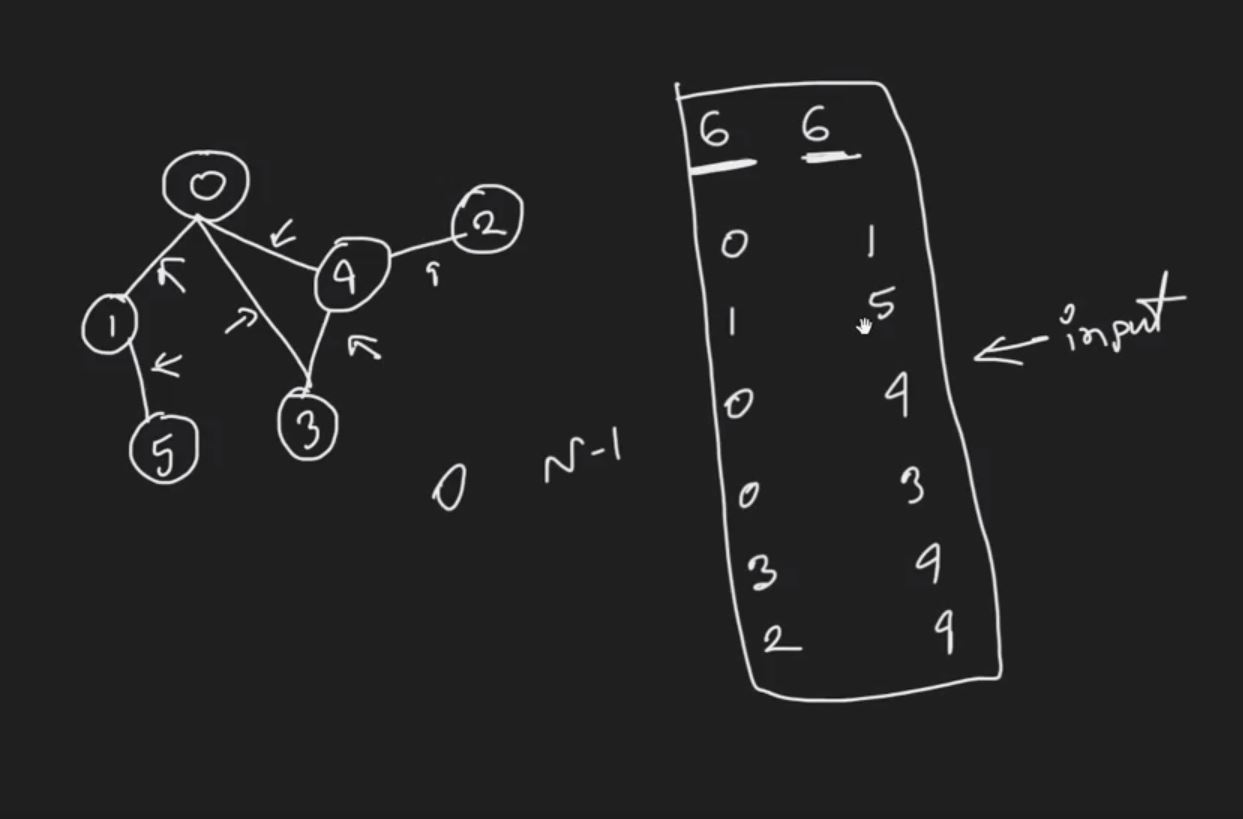 0
2
4
1
3
5
0 N-1
6 6
0 1
1 5
0 4
0 3
3 4
2 4
input